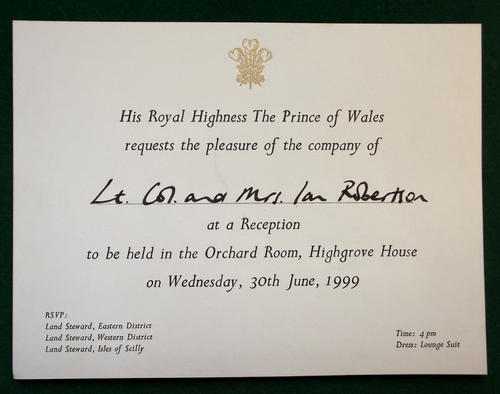 His Royal Highness The Prince of Wales
requests the pleasure of the company of
Lt. Col. and Mrs. Ian Robertson
at a Reception
to be held in the Orchard Room, Highgrove House
on Wednesday, 30th June, 1999
RSVP:
Land Steward, Eastern District
Land Steward, Western District
Land Steward, Isles of Scilly
Time: 4 pm
Dress: Lounge Suit